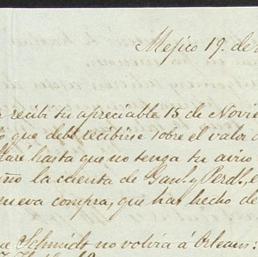 Mejico 19. de
recibí tu apreciable 15 de Novie
que debe recibirse sobre el valor
hasta que no tenga tu aviso
la cuenta de
nueva compra, que has hecho de
Schmidt no volvía á Orleans: